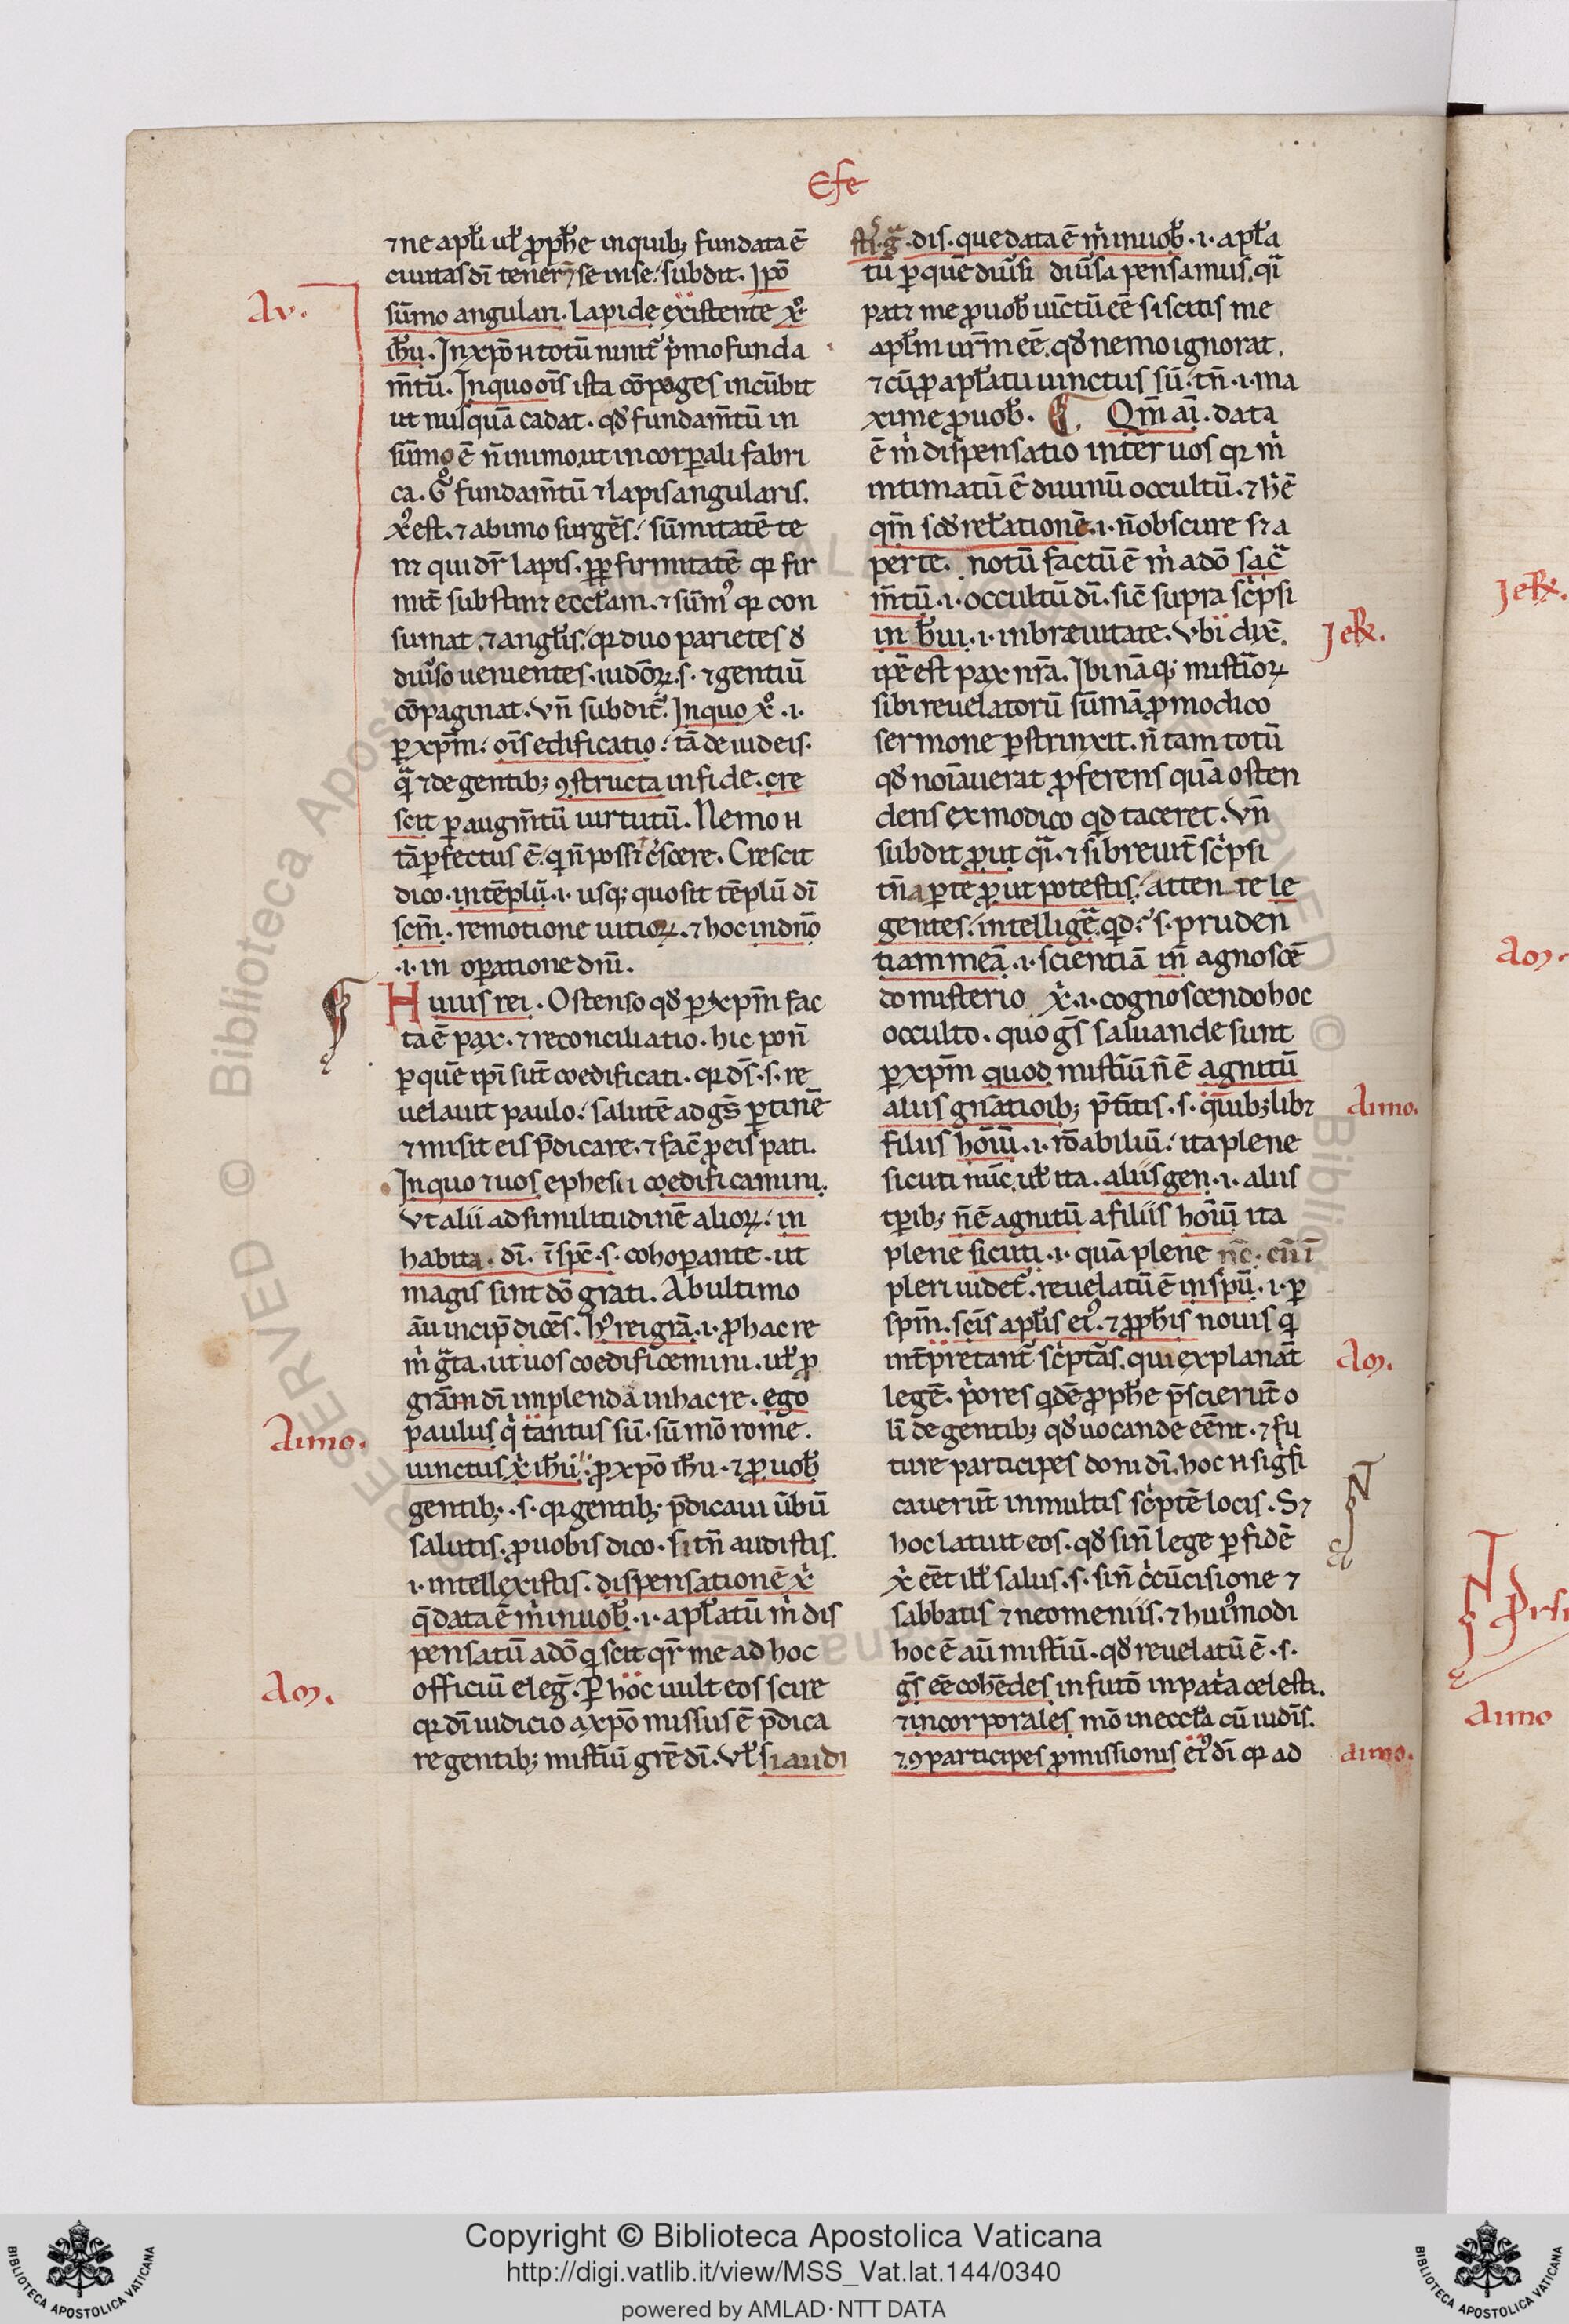 Efe
⁊ ne apl̄i ul̄ ꝓph̄e in quib; fundata ē
ciuitas dī teneret̄ se in se. subdit. Ipō
Av.
sūmo angulari. lapide existente xō
ih̄u. In xpō n̄ totū nitit̄ p̄mo funda
m̄tū. In quo oīs ista cōpages incūbit
ut nusquā cadat. qđ fundam̄tū in
sūmo ē n̄ in imo ut in corꝑali fabri
ca. Gͦ fundam̄tū ⁊ lapis angularis.
xp̄s est. ⁊ ab imo surgēs. sūmitatē te
n⁊ qui dr̄ lapis. ꝓp̄ firmitatē qꝛ fir
mit̄ substin⁊ eccl̄am. ⁊ sūm᷒ qꝛ con
sumat. ⁊ angl̄is. qꝛ duo parietes đ
diu̾so uenientes. iudōꝝ. s. ⁊ gentiū
cōpaginat. Vn̄ subdit̄. In quo xō .i.
ꝑ xpm̄. oīs edificatio. tā de iudeis.
qͣ ⁊ de gentib; ꝯstructa in fide. cre
scit ꝑ augm̄tū uirtutū. Nemo n̄
tā ꝑfectus ē. q n̄ possit c̾scere. Crescit
dico. in tēplū .i. usq; quo sit tēplū dī
scm̄. remotione uitioꝝ. ⁊ hoc in dn̄o
.i. in oꝑatione dn̄i.
Huius rei. Ostenso qđ ꝑ xpm̄ fac
ta ē pax. ⁊ reconciliatio. hic pon̄
ꝑ quē ip̄i sūt coedificati. qꝛ ds̄ .s. re
uelauit paulo. salutē ad gs̄ ꝑtinē
⁊ misit eis p̄dicare. ⁊ fac̄ ꝓ eis pati.
In quo ⁊ uos ephesii coedificamini.
Vt alii ad similitudinē alioꝝ. in
habita. dī. ī spē .s. cohoꝑante. ut
magis sint dō grati. Ab ultimo
aū incip̄ dicēs. H᷒ rei grā .i. ꝓ hac re
m̄ gͣta. ut uos coedificemini. ul̄ ꝓ
grām dī implendā in hac re. ego
Aimo.
paulus q̄ tantus sū. sū mō rome.
uinctus x̄ ih̄u. ꝓ xpō ih̄u. ⁊ ꝓ uob̄
gentib; .s. qꝛ gentib; p̄dicaui ūbū
salutis. ꝓ uobis dico. si tn̄ audistis.
.i. intellexistis. dispensationē x̄
q̄ data ē m̄ in uob̄ .i. apl̄atū m̄ dis
pensatū a dō q scit qr̄ me ad hoc
Am.
officiū eleḡ. Per hoc uult eos scire
qꝛ dī iudicio a xpō missus ē p̄dica
re gentib; mist̄iū grē dī. Vl̄ si audi
stis. gͣ. dis. que data ē m̄ in uob̄ .i. apl̄a
tū ꝑ quē diu̾si diu̾sa pensamus. qͣ
pat⁊ me ꝓ uob̄ uīctū eē si scitis me
apl̄m ur̄m eē. qđ nemo ignorat.
⁊ cū ꝓ apl̄atu uinctus sū. tn̄ .i. ma
xime ꝓ uob̄. Qm̄ aī. data
ē m̄ dispensatio inter uos qꝛ m̄
intimatū ē diuinū occultū. ⁊ h̄ ē
qm̄ scđ rel̄ationē .i. n̄ obscure s⁊ a
perte. notū factū ē m̄ a dō sacͣ
m̄tū .i. occultū dī. sic̄ supra sc̾psi
Jeꝝ.
in b̄ui .i. in breuitate. Vbi dix̄.
ip̄e est pax nr̄a. Ibi nāq; mist̄ioꝝ
sibi reuelatorū sūmā ꝓ modico
sermone ꝑstrinxit. n̄ tam totū
qđ noīauerat ꝓferens quā osten
dens ex modico qđ taceret. Vn̄
subdit ꝓut qͣ. ⁊ si breuit̄ sc̾psi
tn̄ aꝑte ꝓut potestis. attente le
gentes. intelligē. qđ s. pruden
tiam meā .i. scientiā in̄ agnoscē
do misterio x̄ .i. cognoscendo hoc
occulto. quo gs̄ saluande sunt
ꝑ xpm̄ quod mist̄iū n̄ ē agnitū
Aimo.
aliis gn̄atioib; p̄t̄itis .s. quib; lib⁊
filiis hoīū .i. rōabiliū. ita plene
sicuti nūc. ul̄ ita. aliis gen .i. aliis
tꝑib; n̄ ē agnitū a filiis hoīū ita
plene sicuti .i. quā plene nc̄. cū ī
pleri uidet̄. reuelatū ē in spū .i. ꝑ
spm̄. scīs apl̄is ei᷒. ⁊ ꝓph̄is nouis q
Am.
int̄pretant̄ sc̾ptās. qui explanāt
legē. p̄ores qdē ꝓph̄e p̄scierūt o
lī de gentib; qđ uocande eēnt. ⁊ fu
ture participes doni dī. hoc n̄ sigͥfi
cauerūt in multis sc̾ptē locis. S⁊
hoc latuit eos. qđ sin̄ lege ꝑ fidē
x̄ eēt ill̄ salus .s. sin̄ c̾cūcisione ⁊
sabbatis ⁊ neomeniis. ⁊ hui᷒modi
hoc ē aū mist̄iū. qđ reuelatū ē .s.
gs̄ eē cohēdes in futō in pat̄a celesti.
⁊ incorporales mō in eccl̄a cū iudīs.
Aimo.
⁊ ꝯparticipes ꝓmissionis ei᷒ dī qꝛ ad
Jeꝝ.
Am.
Aimo
Copyright © Biblioteca Apostolica Vaticana
http://digi.vatlib.it/view/MSS_Vat.lat.144/0340
powered by AMLAD·NTT DATA
BIBLIOTECA APOSTOLICA VATICANA
BIBLIOTECA APOSTOLICA VATICANA